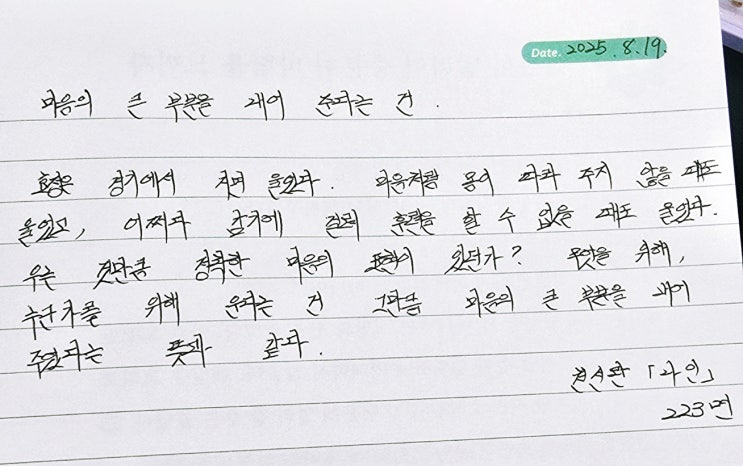 Date. 2025. 8. 19.
마음의 큰 부분을 내어 준다는 건.
효정은 경기에서 지면 울었다. 마음처럼 몸이 따라 주지 않을 때도
울었고, 어쩌다 감기에 걸려 훈련을 할 수 없을 때도 울었다.
우는 것만큼 정확한 마음의 표현이 있던가? 무엇을 위해,
누군가를 위해 운다는 건 그만큼 마음의 큰 부분을 내어
주었다는 뜻과 같다.
천선란 「라인」
223면